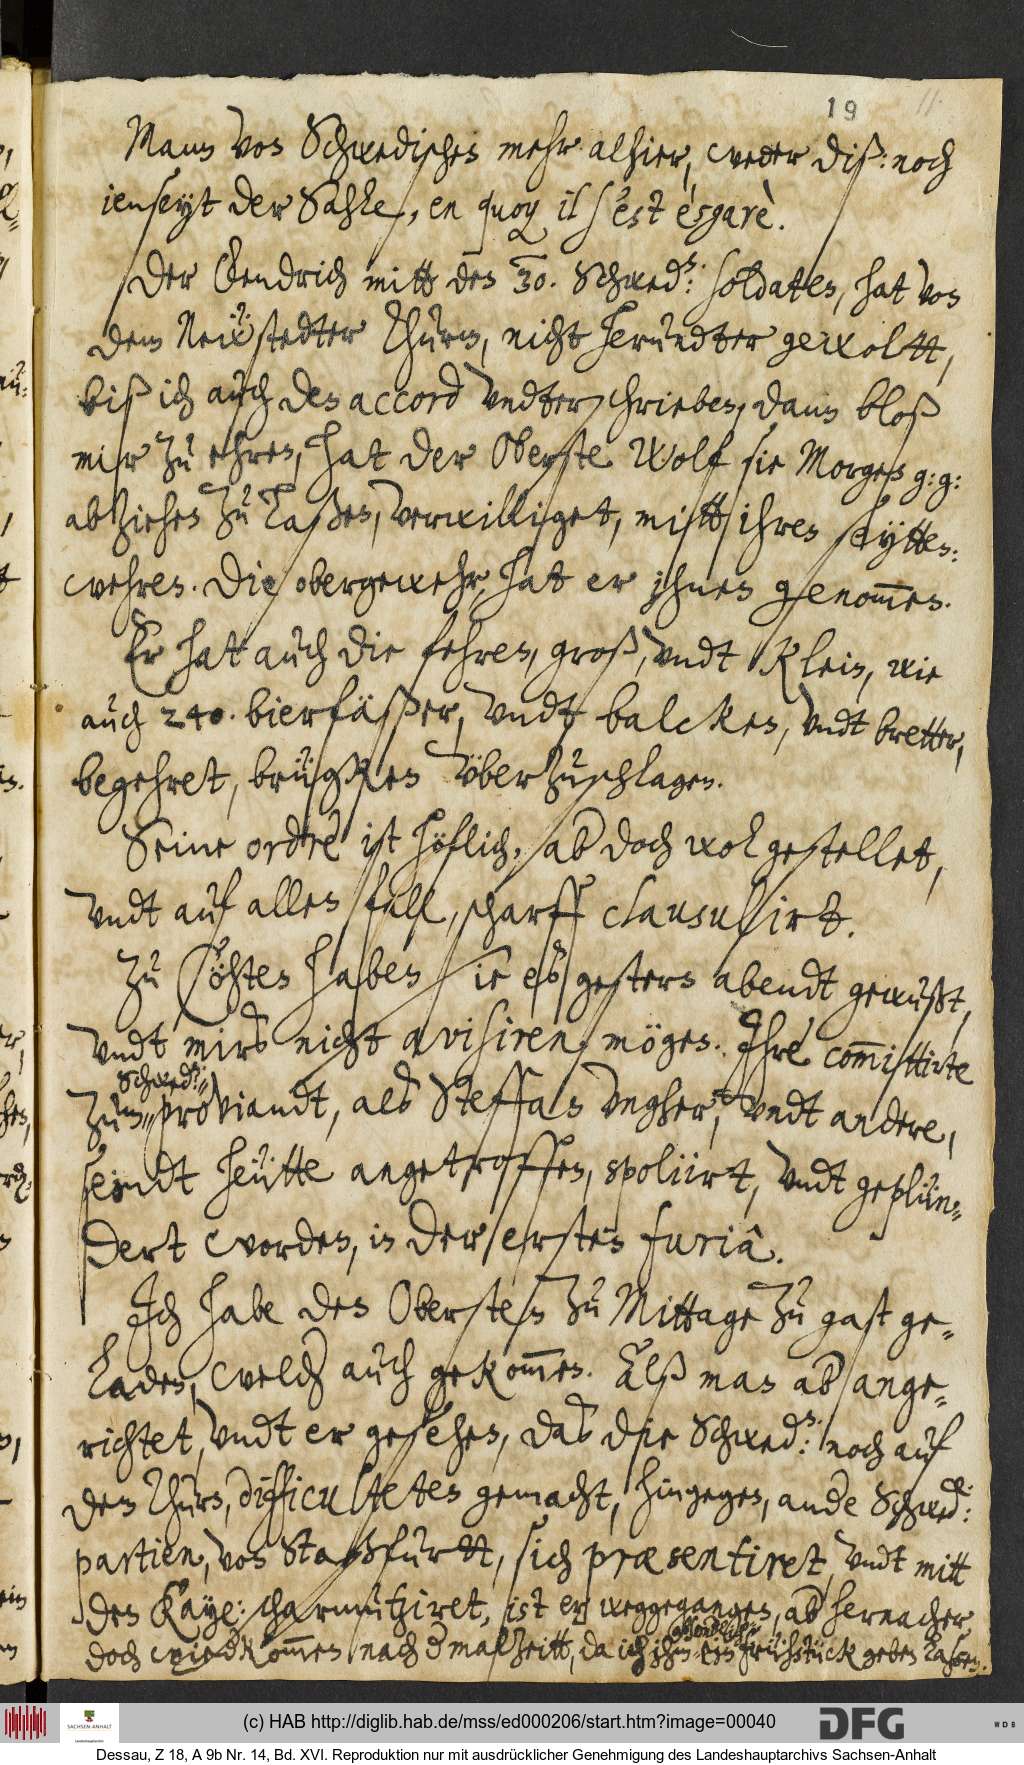 19
11.
Mann von Schwedischen mehr alhier, weder diß: noch
ienseyt der Sahle, en quoy il s'est èsgarè.
Der Fendrich mitt den 30. Schwed:n: soldaten, hat von
dem Neinstedter Thurm, nicht herundter gewoltt,
biß ich auch den accord vndterschrieben, dann bloß
mir zu ehren, hat der Oberste Wolf sie Morgen g: g:
abziehen zu laßen, verwilliget, mitt ihren seytten:
wehren. Die obergewehr, hat er ihnen genom̅en.
Er hat auch die fehren, groß, vndt klein, wie
auch 240. bierfäßer, vndt balcken, vndt bretter,
begehret, brügken vberzuschlagen.
Seine ordre ist höflich, ab doch wol gestellet,
vndt auf allen fall, scharff clausulirt.
Zu Cöhten haben sie es gestern abendt gewußt,
vndt mirs nicht avisiren mögen. Ihre com̅ittirte
Schwed:n:
zum proviandt, als Steffan Vngher, vndt andere,
seindt heütte angetroffen, spoliirt, vndt geplün-
dert worden, in der ersten furiâ.
Ich habe den Obersten zu Mittage zu gast ge-
laden, welch auch gekom̅en. Alß man ab ange-
richtet, vndt er gesehen, das die Schwed:n: noch auf
dem Thurn, difficulteten gemacht, hingegen, ande Schwed:
partien, von Staßfurtt, sich præsentiret, vndt mitt
den Kaye: scharmütziret, ist er weggegangen, ab hernacher,
abendlich
doch wiedkom̅en nach d malzeitt, da ich ihm ein frühstück geben laßen.
(c) HAB http://diglib.hab.de/mss/ed000206/start.htm?image=00040
SACHSEN-ANHALT
Landeshauptarchiv
DFG
WDB
Dessau, Z 18, A 9b Nr. 14, Bd. XVI. Reproduktion nur mit ausdrücklicher Genehmigung des Landeshauptarchivs Sachsen-Anhalt